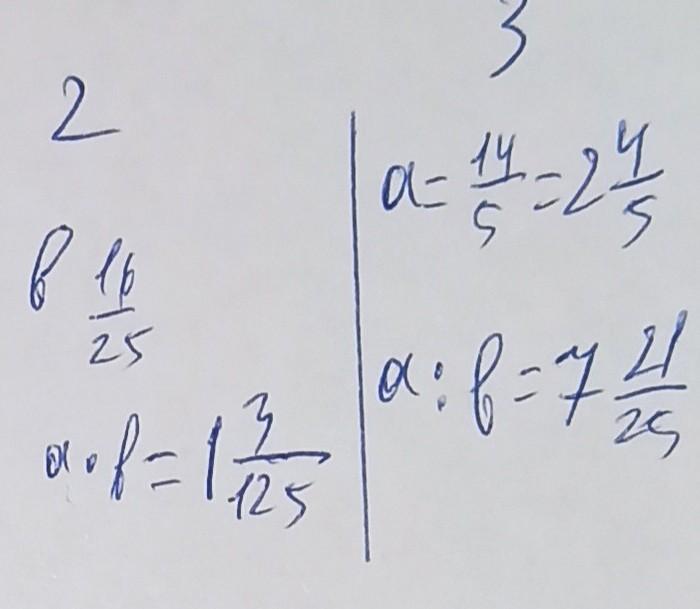 2
в 16/25
a · в = 1 3/125
3
a = 14/5 = 2 4/5
a : в = 7 21/25